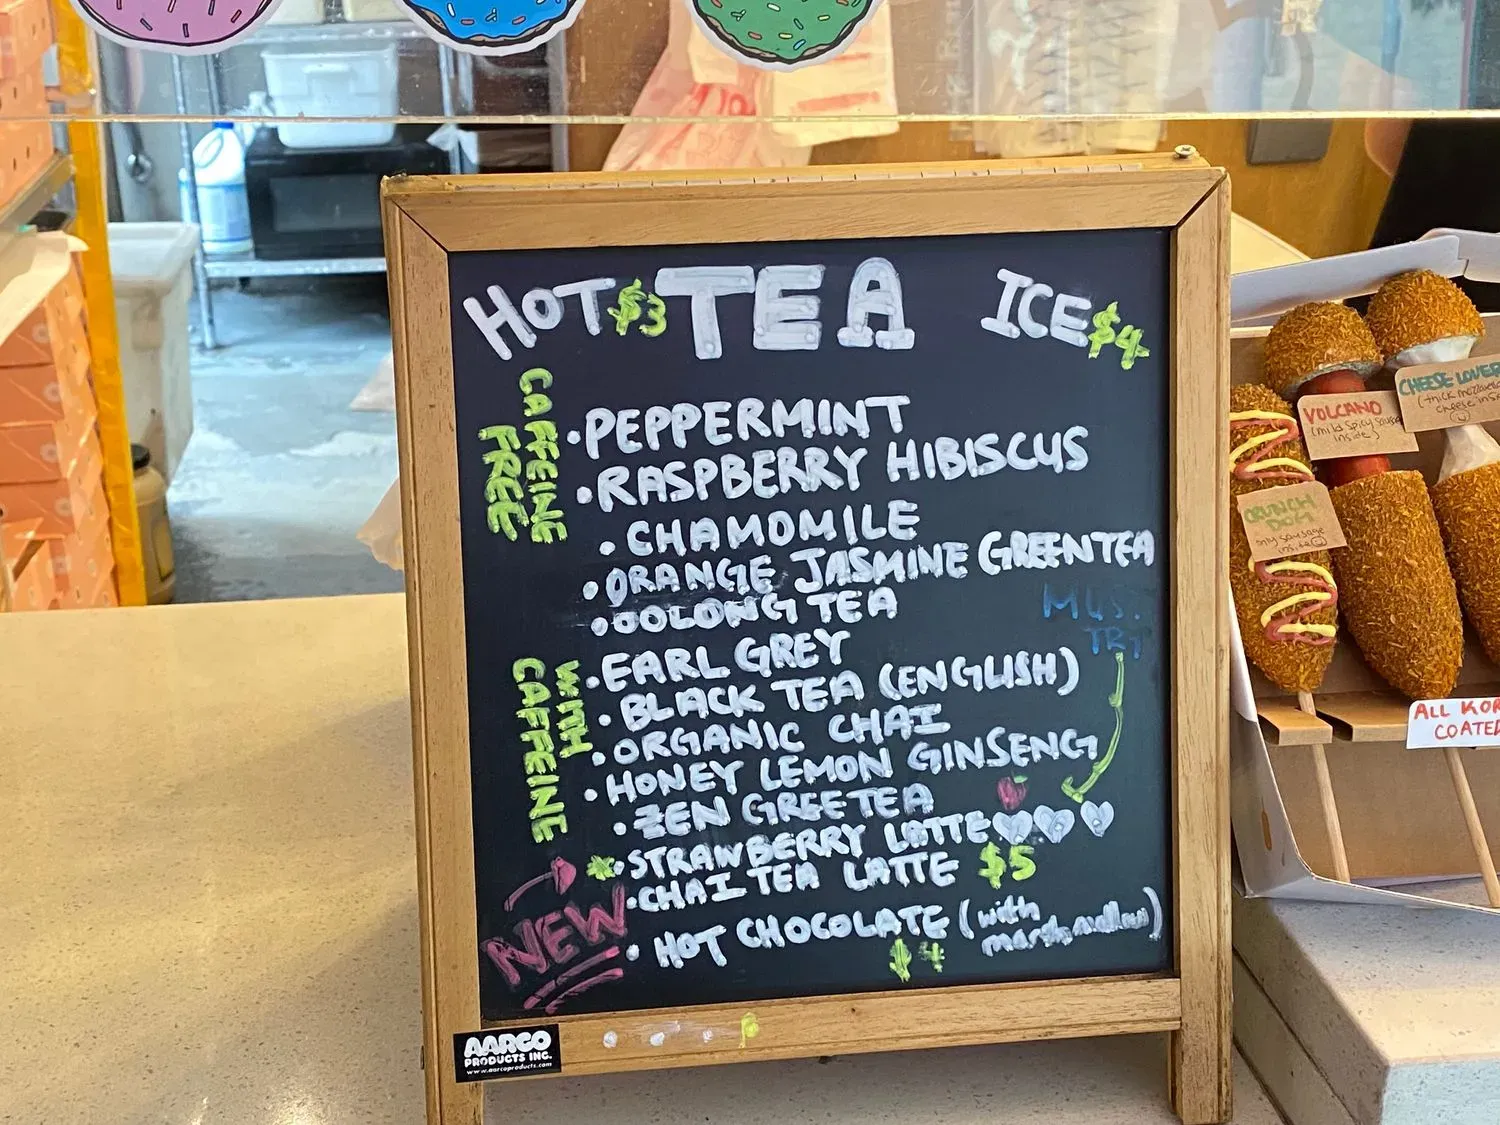 HOT $3 TEA ICE $4
CAFFEINE FREE
• PEPPERMINT
• RASPBERRY HIBISCUS
• CHAMOMILE
• ORANGE JASMINE GREEN TEA
• OOLONG TEA
MUS. TRY
WITH CAFFEINE
• EARL GREY
• BLACK TEA (ENGLISH)
• ORGANIC CHAI
• HONEY LEMON GINSENG
• ZEN GREE TEA
• STRAWBERRY LATTE
• CHAI TEA LATTE $5
NEW
• HOT CHOCOLATE (with marshmallow)
$4
AARCO
PRODUCTS INC.
www.aarcoproducts.com
CHEESE LOVER
(thick mozzarella
cheese inside
VOLCANO
(mild spicy sausage
inside)
CRUNCH
DOG
only sausage
inside
ALL KOR
COATED